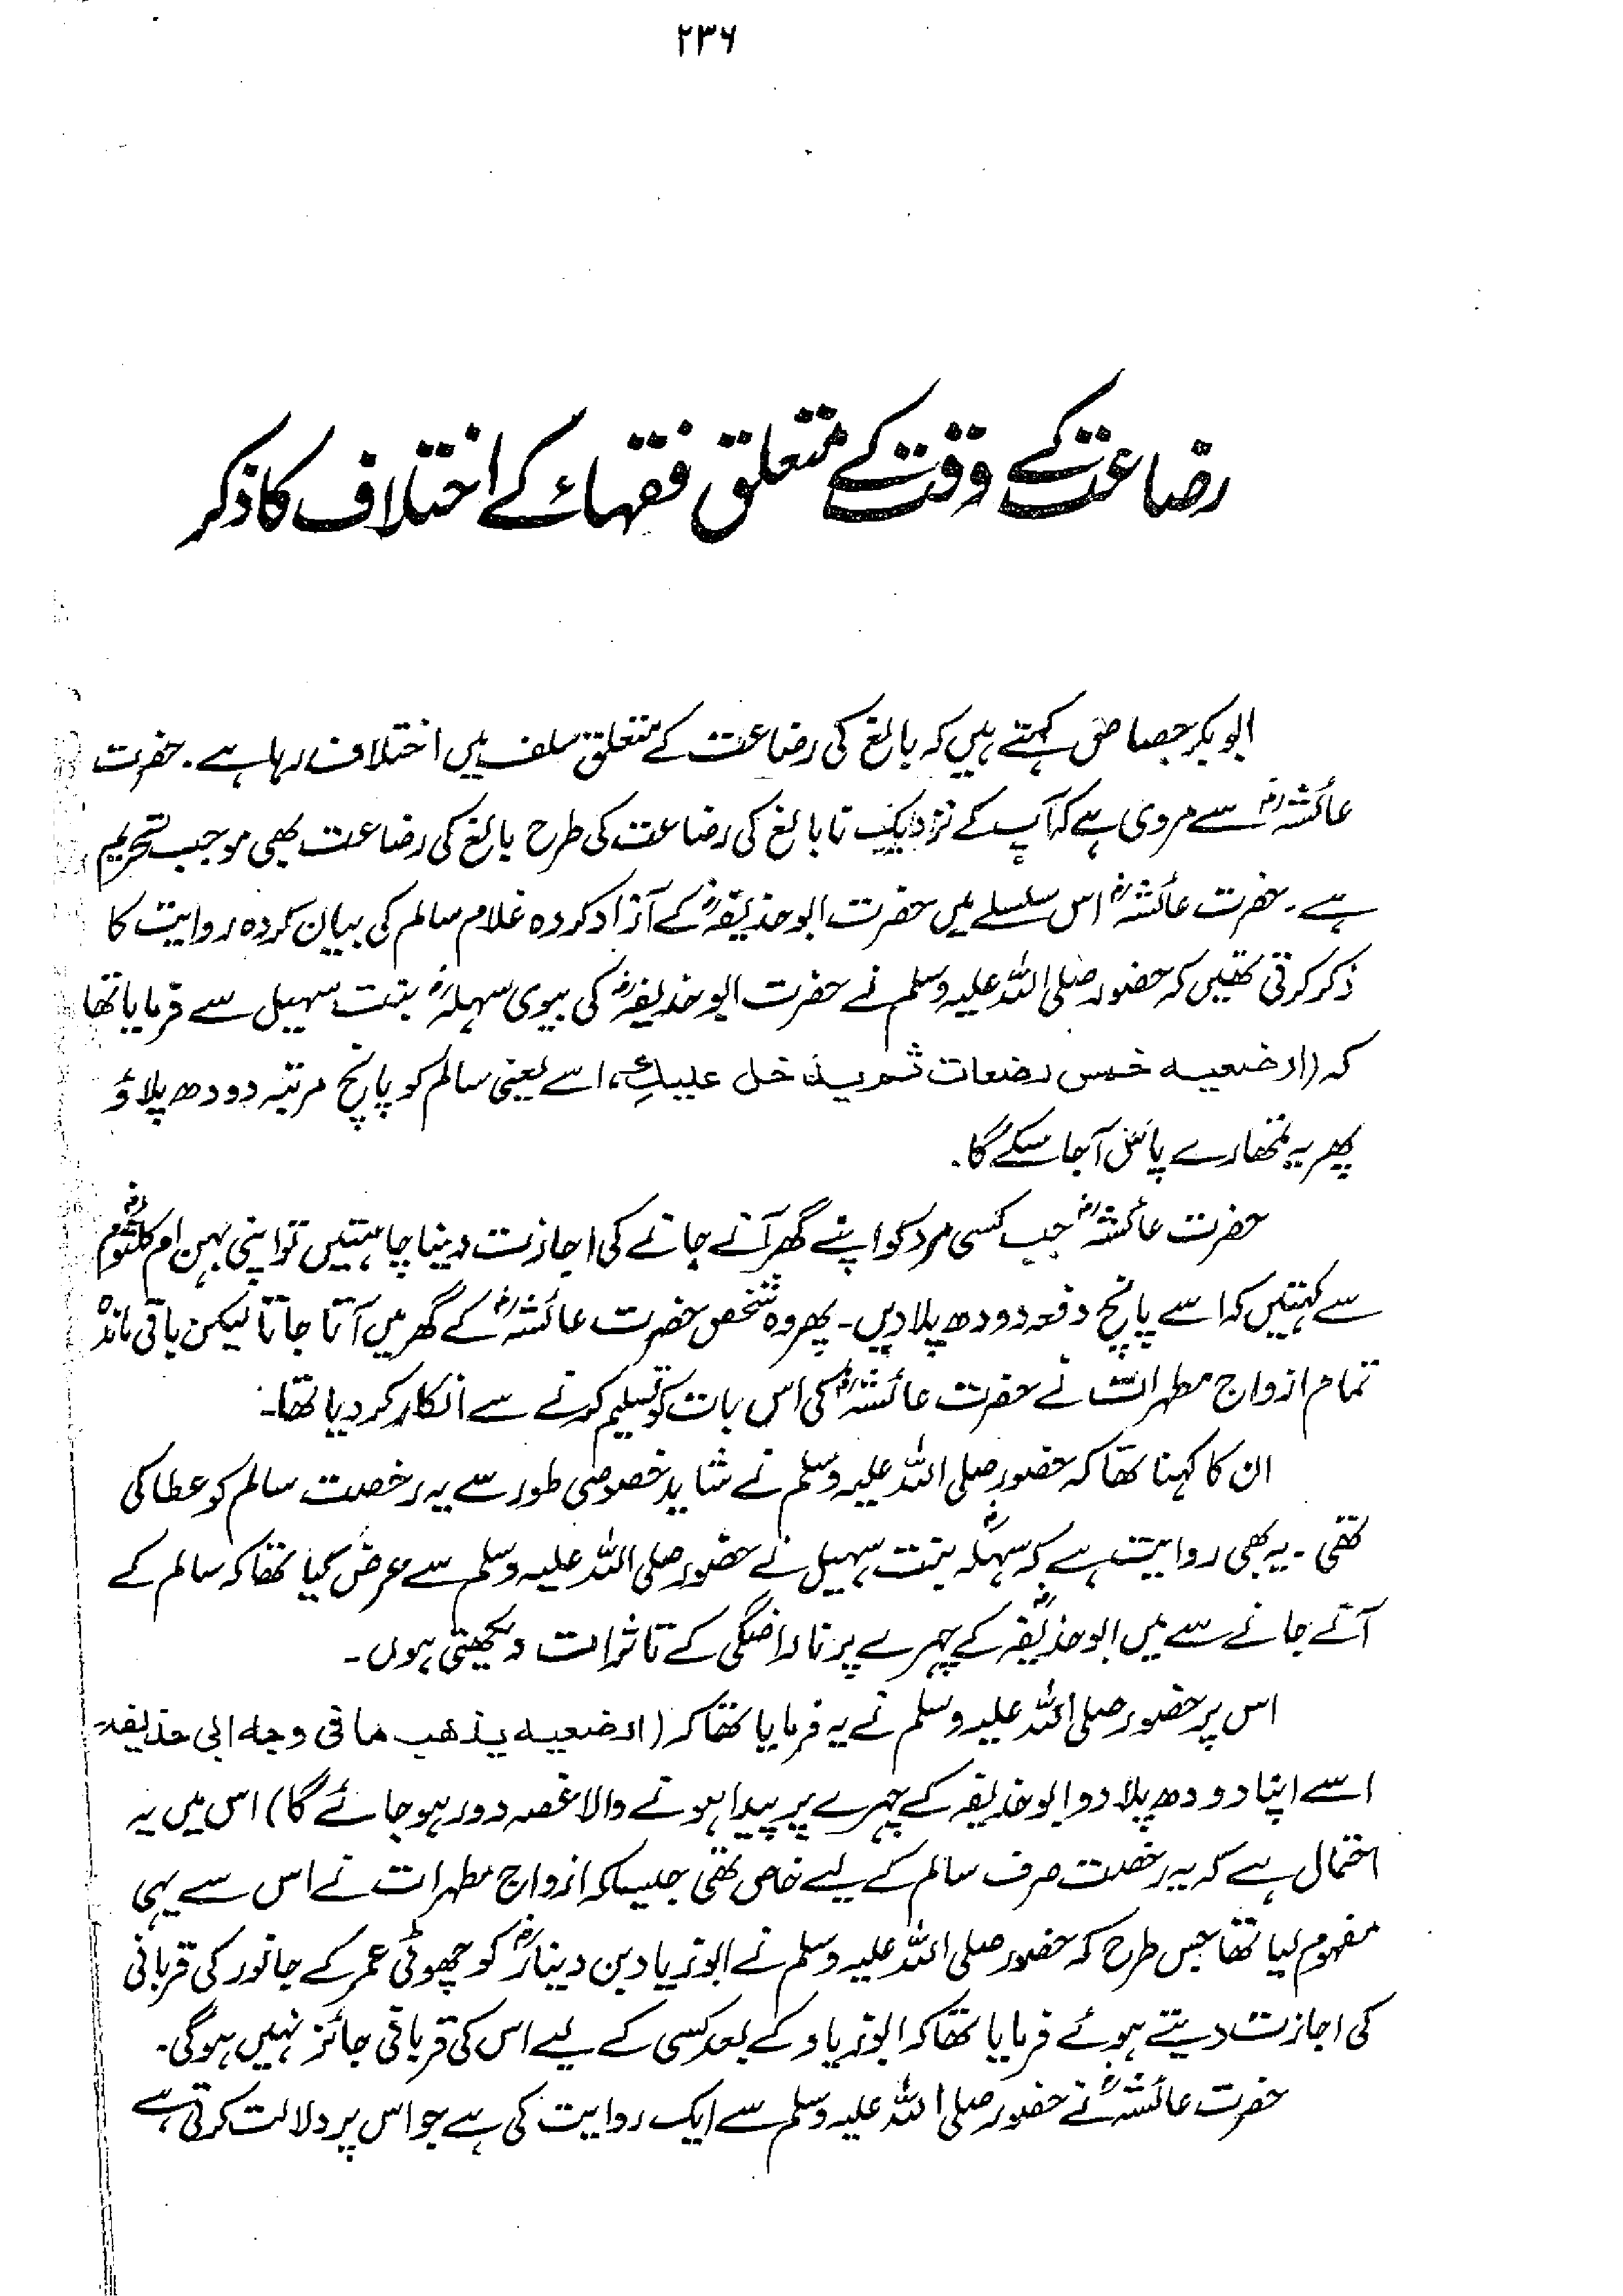 ۲۳۶
رضاعت کے وقت کے متعلق فقہاء کے اختلاف کا ذکر
ابوبکر جصاص کہتے ہیں کہ بالغ کی رضاعت کے متعلق سلف میں اختلاف رہا ہے۔ حضرت
عائشہؓ سے مروی ہے کہ آپ کے نزدیک نابالغ کی رضاعت کی طرح بالغ کی رضاعت بھی موجب تحریم
ہے۔ حضرت عائشہؓ اس سلسلے میں حضرت ابوحذیفہؓ کے آزاد کردہ غلام سالم کی بیان کردہ روایت کا
ذکر کرتی تھیں کہ حضور صلی اللہ علیہ وسلم نے حضرت ابوحذیفہؓ کی بیوی سہلہؓ بنت سہیل سے فرمایا تھا
کہ (ارضعیہ خمس رضعات ثم یدخل علیکِ، اسے یعنی سالم کو پانچ مرتبہ دودھ پلاؤ
پھر یہ تمھارے پاس آجا سکے گا۔
حضرت عائشہؓ جب کسی مرد کو اپنے گھر آنے جانے کی اجازت دینا چاہتیں تو اپنی بہن ام کلثومؓ
سے کہتیں کہ اسے پانچ دفعہ دودھ پلا دیں۔ پھر وہ شخص حضرت عائشہؓ کے گھر میں آتا جاتا لیکن باقی ماندہ
تمام ازواج مطہرات نے حضرت عائشہؓ کی اس بات کو تسلیم کرنے سے انکار کر دیا تھا۔
ان کا کہنا تھا کہ حضور صلی اللہ علیہ وسلم نے شاید خصوصی طور سے یہ رخصت سالم کو عطا کی
تھی۔ یہ بھی روایت ہے کہ سہلہؓ بنت سہیل نے حضور صلی اللہ علیہ وسلم سے عرض کیا تھا کہ سالم کے
آنے جانے سے میں ابوحذیفہؓ کے چہرے پر ناراضگی کے تاثرات دیکھتی ہوں۔
اس پر حضور صلی اللہ علیہ وسلم نے یہ فرمایا تھا کہ (ارضعیہ یذھب مافی وجہ ابی حذیفہ
اسے اپنا دودھ پلا دو ابوحذیفہ کے چہرے پر پیدا ہونے والا غصہ دور ہو جائے گا) اس میں یہ
احتمال ہے کہ یہ رخصت صرف سالم کے لیے خاص تھی جیسا کہ ازواج مطہرات نے اس سے یہی
مفہوم لیا تھا جس طرح کہ حضور صلی اللہ علیہ وسلم نے ابوزیاد بن دینارؓ کو چھوٹی عمر کے جانور کی قربانی
کی اجازت دیتے ہوئے فرمایا تھا کہ ابوزیاد کے بعد کسی کے لیے اس کی قربانی جائز نہیں ہوگی۔
حضرت عائشہؓ نے حضور صلی اللہ علیہ وسلم سے ایک روایت کی ہے جو اس پر دلالت کرتی ہے